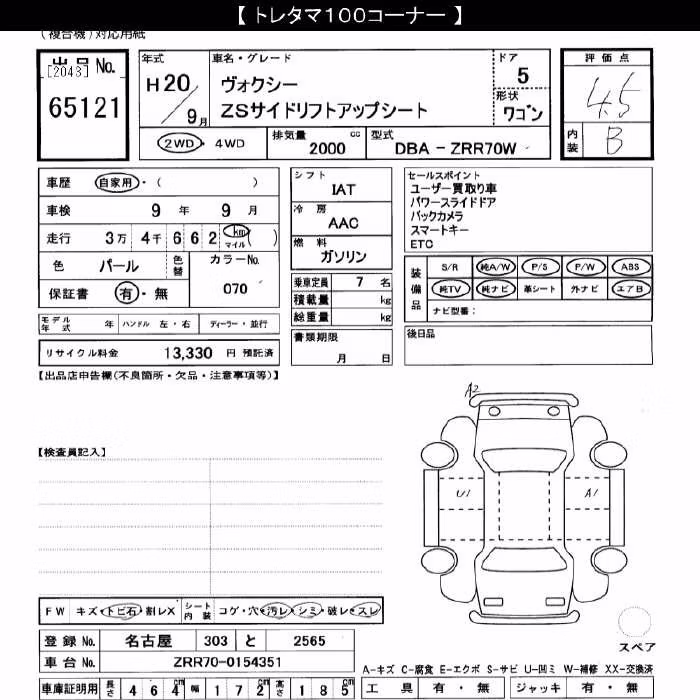 【 トレタマ100コーナー 】
(複合機)対応用紙
出品No.
[2043]
65121
年式
H20
9月
車名・グレード
ヴォクシー
ZSサイドリフトアップシート
ドア
5
形状
ワゴン
評価点
4.5
内装
B
2WD・4WD
排気量
2000 cc
型式
DBA - ZRR70W
車歴 自家用・( )
車検 9年 9月
走行 3万 4千 6 6 2 km マイル ( )
色 パール 色替
カラーNo.
070
保証書 有・無
モデル年式 年 ハンドル 左・右 ディーラー・並行
リサイクル料金 13,330 円 預託済
シフト
IAT
冷房
AAC
燃料
ガソリン
乗車定員 7 名
積載量 kg
総重量 kg
書類期限
月 日
セールスポイント
ユーザー買取り車
パワースライドドア
バックカメラ
スマートキー
ETC
装備品
S/R 純A/W P/S P/W ABS
純TV 純ナビ 革シート 外ナビ エアB
ナビ型番:
後日品
【出品店申告欄(不良箇所・欠品・注意事項等)】
【検査員記入】
A2
U1
A1
スペア
FW キズ・トビ石・割レX シート内装 コゲ・穴・汚レ・シミ・破レ・スレ
登録No. 名古屋 303 と 2565
車台No. ZRR70-0154351
車庫証明用 長さ 4 6 4 cm 幅 1 7 2 cm 高さ 1 8 5 cm
A-キズ C-腐食 E-エクボ S-サビ U-凹ミ W-補修 XX-交換済
工具 有・無 ジャッキ 有・無